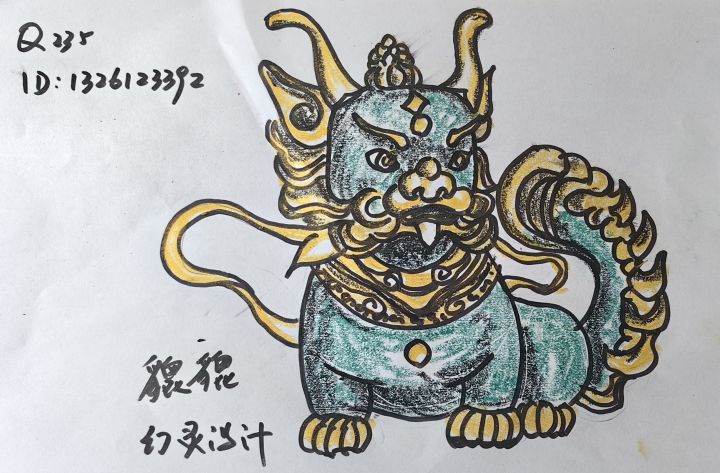 Q235
ID:1326123392
貔貔
幻灵设计